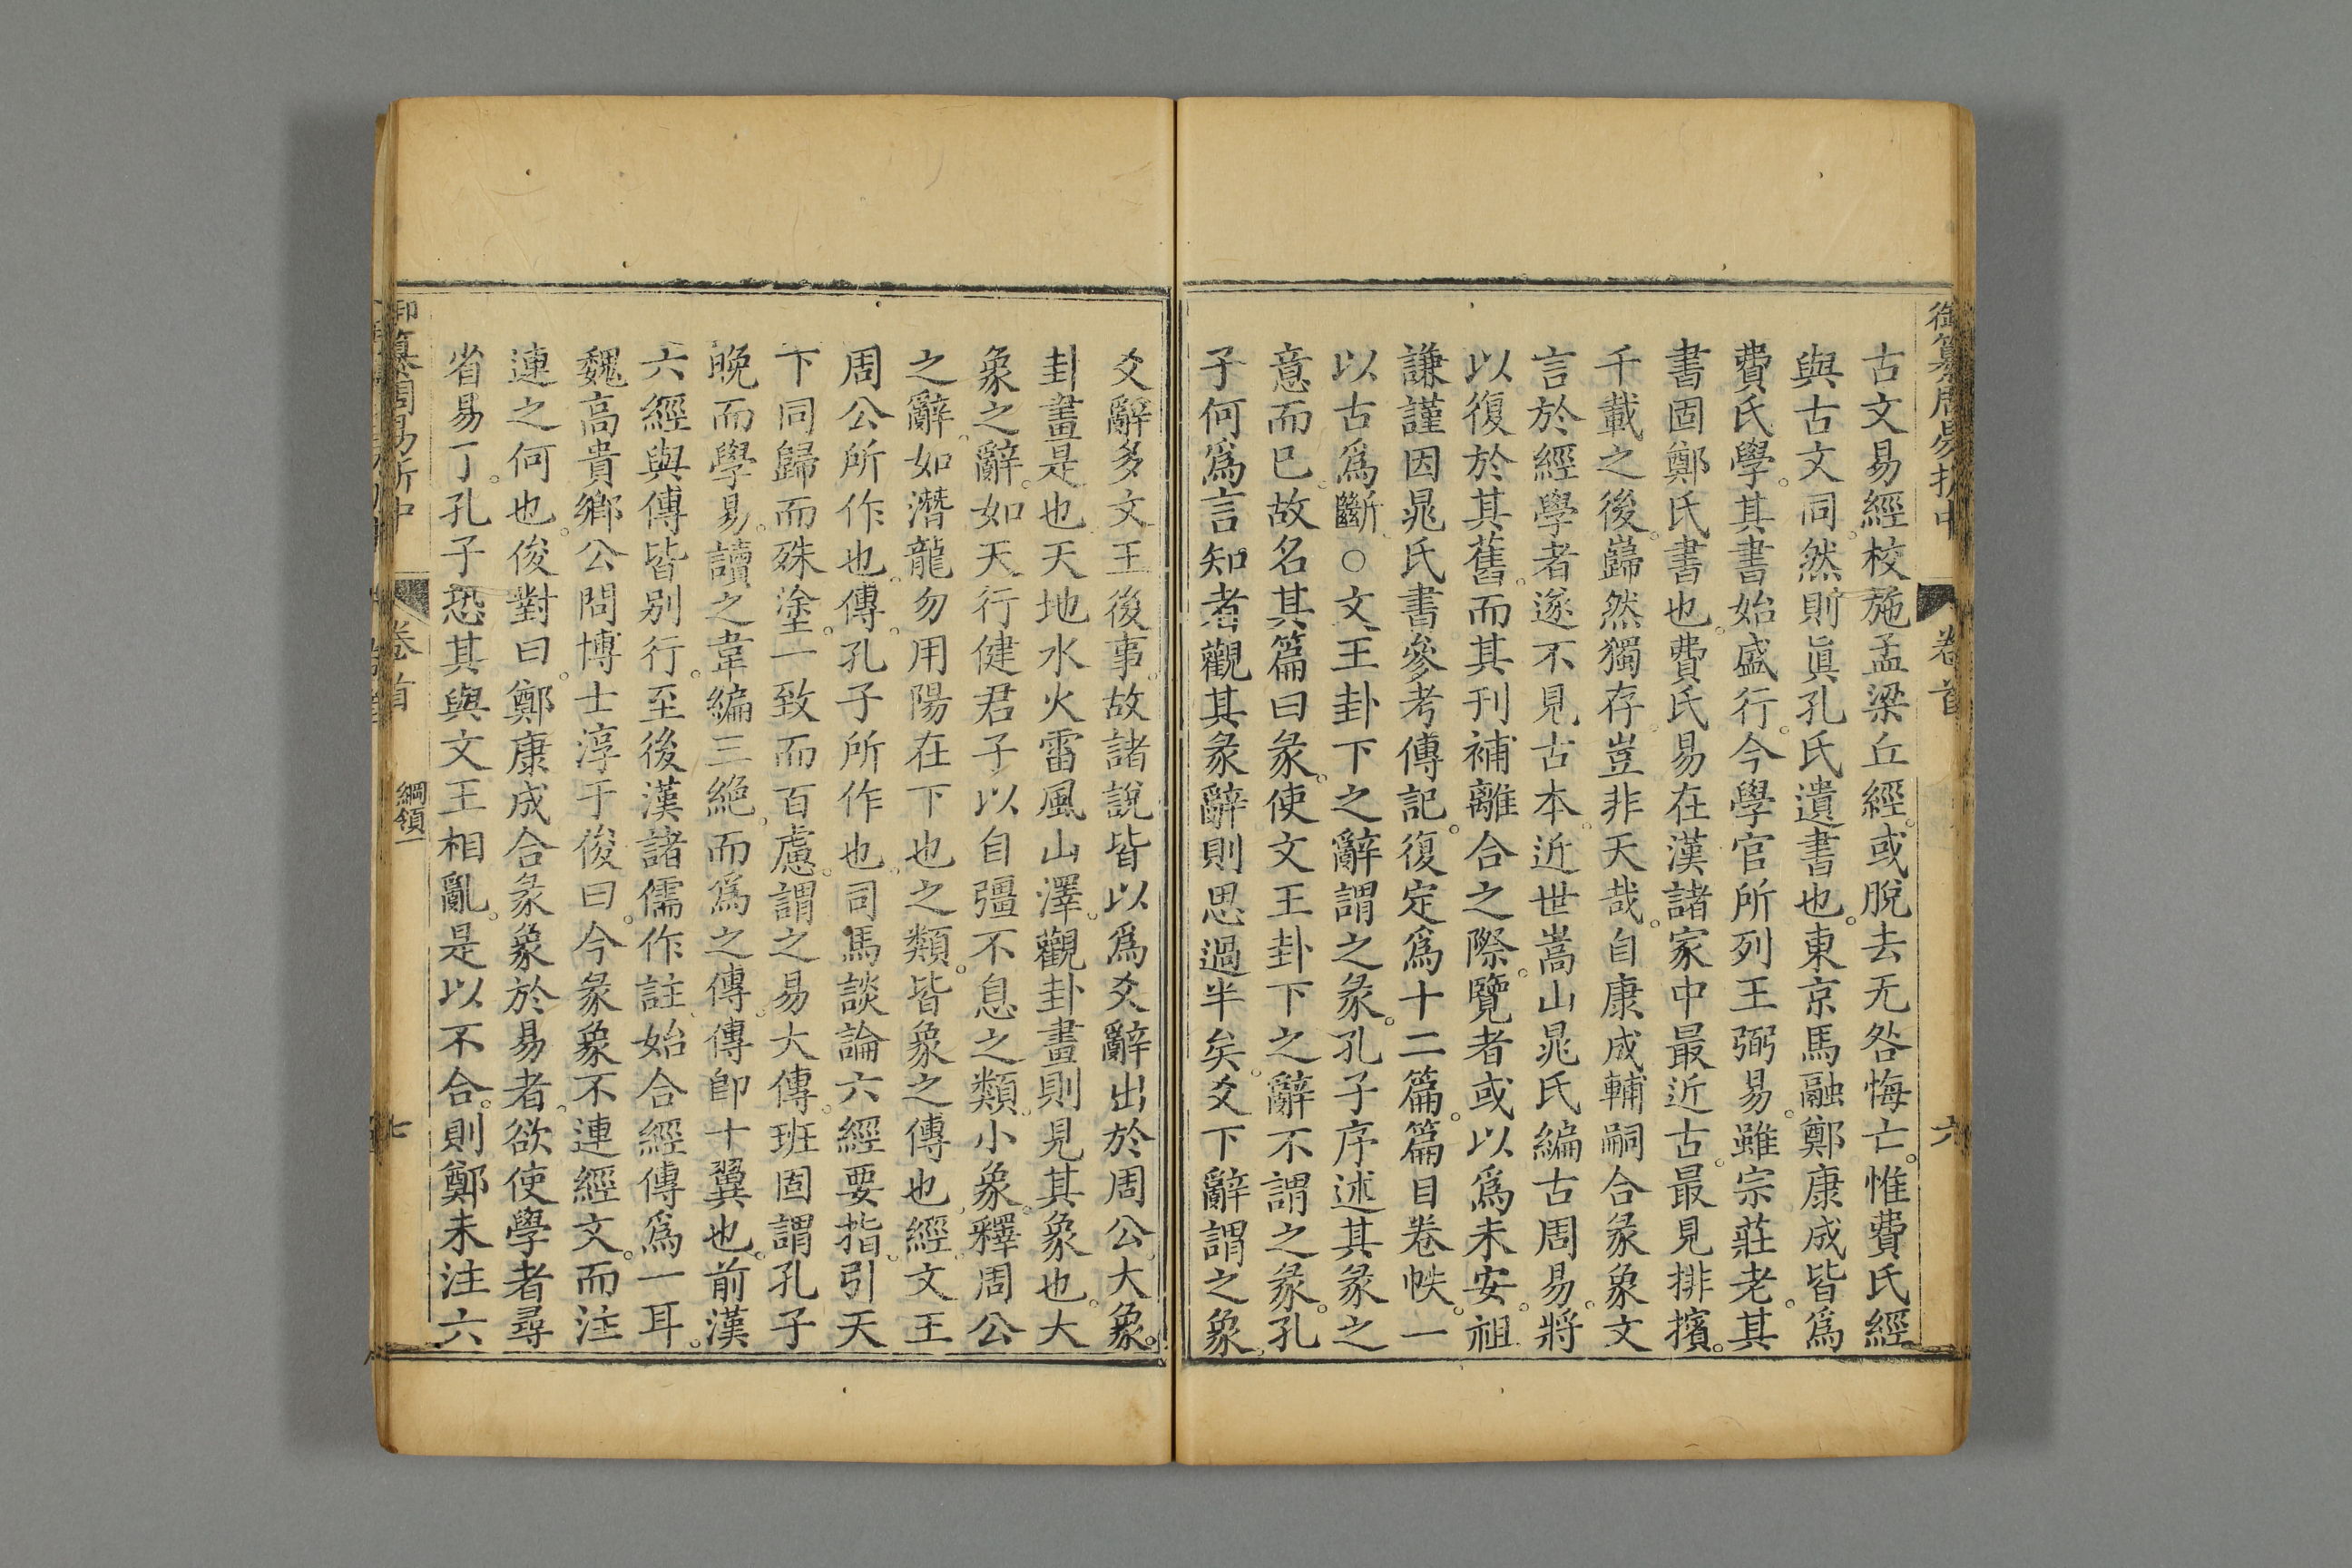 古文易經校施孟梁丘經。或脫去无咎悔亡。惟費氏經。
與古文同。然則眞孔氏遺書也。東京馬融鄭康成皆爲
費氏學。其書始盛行。今學官所列王弼易。雖宗莊老。其
書固鄭氏書也。費氏易在漢諸家中最近古。最見排擯。
千載之後。巋然獨存。豈非天哉。自康成輔嗣合彖象文
言於經學者遂不見古本。近世嵩山晁氏編古周易。將
以復於其舊。而其刊補離合之際。覽者或以爲未安。祖
謙謹因晁氏書參考傳記。復定爲十二篇。篇目卷帙。一
以古爲斷。○文王卦下之辭謂之彖。孔子序述其彖之
意而已。故名其篇曰彖。使文王卦下之辭不謂之彖。孔
子何爲言知者觀其彖辭則思過半矣。爻下辭謂之象。
爻辭多文王後事。故諸說皆以爲爻辭出於周公。大象。
卦畫是也。天地水火雷風山澤。觀卦畫則見其象也。大
象之辭。如天行健君子以自彊不息之類。小象。釋周公
之辭。如潛龍勿用陽在下也。之類。皆象之傳也。經。文王
周公所作也。傳。孔子所作也。司馬談論六經要指。引天
下同歸而殊塗。一致而百慮。謂之易大傳。班固謂孔子
晚而學易。讀之韋編三絶。而爲之傳。傳卽十翼也。前漢
六經與傳皆别行。至後漢諸儒作註。始合經傳爲一耳。
魏高貴鄉公問博士淳于俊曰。今彖象不連經文。而注
連之何也。俊對曰。鄭康成合彖象於易者。欲使學者尋
省易了。孔子恐其與文王相亂。是以不合。則鄭未注六
御纂周易折中
卷首
六
御纂周易折中
卷首
綱領一
七